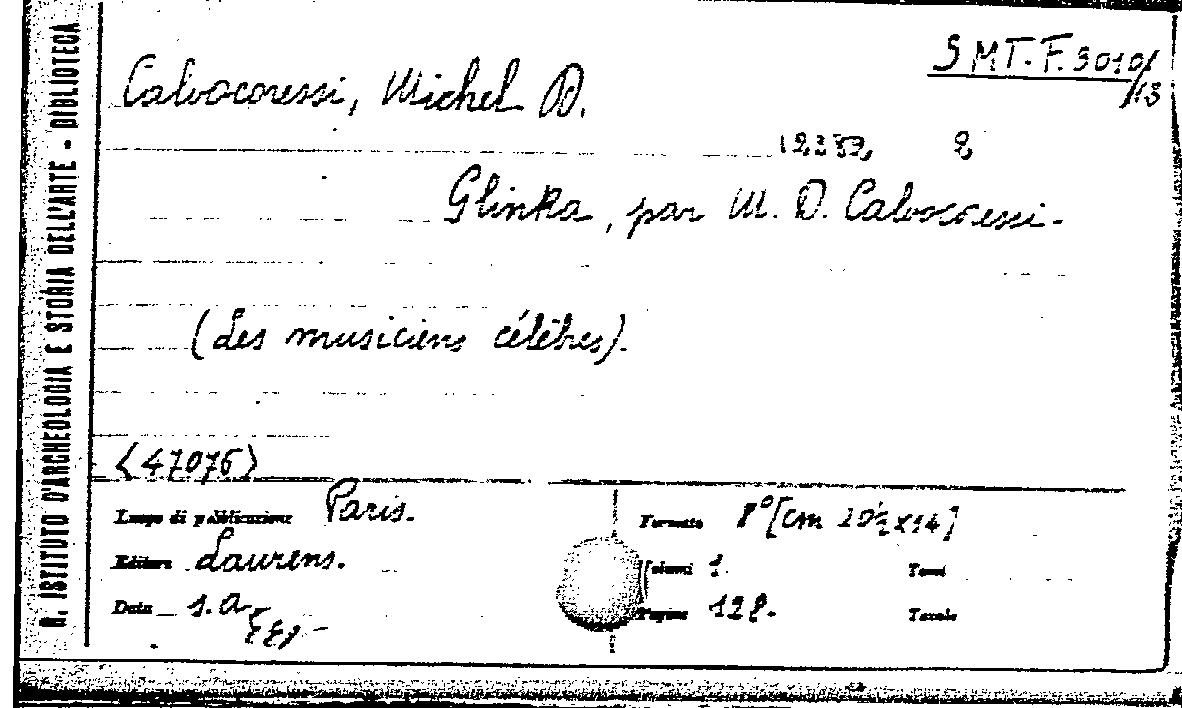 R. ISTITUTO D'ARCHEOLOGIA E STORIA DELL'ARTE - BIBLIOTECA
SMT.F.3010/13
Calvocoressi, Michel D.
Glinka, par M. D. Calvocoressi.
(Les musiciens célèbres).
<47076>
Luogo di pubblicazione Paris.
Editore Laurens.
Data s.a.
Formato 8° [cm 20½x14]
Volumi 1.
Tomi
Pagine 128.
Tavole